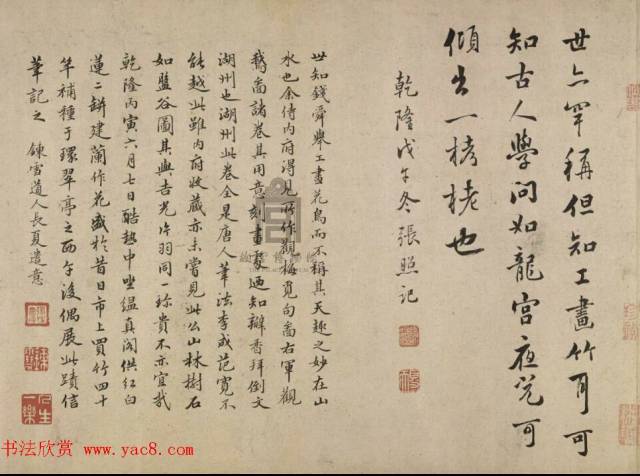 世亦罕稱但知工畫竹耳可
知古人學問如龍宮夜光可
傾出一栲栳也
乾隆戊午冬張照記
世知錢舜舉工畫花鳥而不稱其天趣之妙在山
水也余侍内府得見所作觀梅覓句啚右軍觀
鵞啚諸卷其用意刻畫
知瓣香拜倒文
湖州也湖州此卷全是唐人筆法李成范寬不
能越此雖内府收藏亦未嘗見此公山林樹石
如盤谷圖其與吉光片羽同一珍貴不亦宜哉
乾隆丙寅六月七日酷熱中坐縕真閣供紅白
蓮二缾建蘭作花盛於昔日市上買竹四十
竿補種于環翠亭之西午後偶展此蹟信
筆記之 鍊雪道人長夏遣意
人生一樂
书法欣赏 www.yac8.com